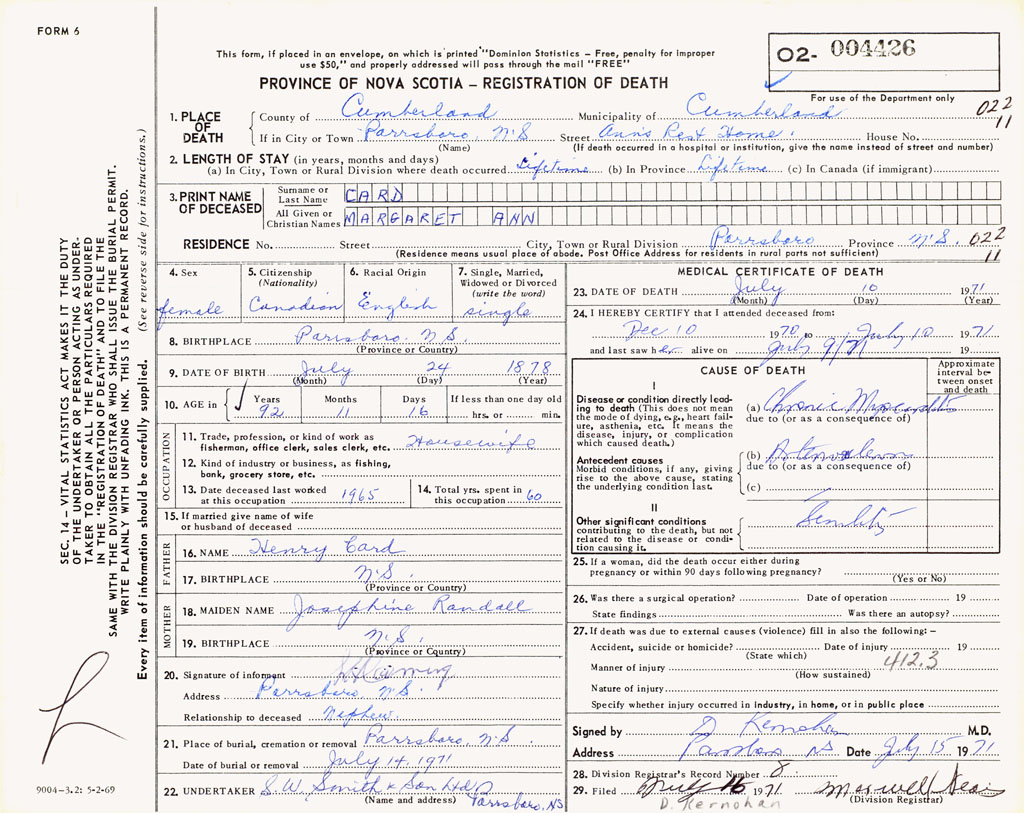 FORM 6
This form, if placed in an envelope, on which is printed "Dominion Statistics – Free, penalty for improper
use $50," and properly addressed will pass through the mail "FREE"
PROVINCE OF NOVA SCOTIA – REGISTRATION OF DEATH
02- 004426
For use of the Department only
022
11
1. PLACE OF DEATH
County of Cumberland Municipality of Cumberland
If in City or Town Parrsboro, N.S Street Ann's Rest Home. House No.
(Name) (If death occurred in a hospital or institution, give the name instead of street and number)
2. LENGTH OF STAY (in years, months and days)
(a) In City, Town or Rural Division where death occurred Lifetime (b) In Province Lifetime (c) In Canada (if immigrant)
3. PRINT NAME OF DECEASED
Surname or Last Name CARD
All Given or Christian Names MARGARET ANN
RESIDENCE No. Street City, Town or Rural Division Parrsboro Province N.S. 022
11
(Residence means usual place of abode. Post Office Address for residents in rural parts not sufficient)
4. Sex
female
5. Citizenship
(Nationality)
Canadian
6. Racial Origin
English
7. Single, Married,
Widowed or Divorced
(write the word)
single
8. BIRTHPLACE Parrsboro N.S.
(Province or Country)
9. DATE OF BIRTH July 24 1878
(Month) (Day) (Year)
10. AGE in
Years Months Days If less than one day old
92 11 16 hrs. or min.
OCCUPATION
11. Trade, profession, or kind of work as
fisherman, office clerk, sales clerk, etc. Housewife
12. Kind of industry or business, as fishing,
bank, grocery store, etc.
13. Date deceased last worked
at this occupation 1965
14. Total yrs. spent in
this occupation 60
15. If married give name of wife
or husband of deceased
FATHER
16. NAME Henry Card
17. BIRTHPLACE N.S.
(Province or Country)
MOTHER
18. MAIDEN NAME Josephine Randall
19. BIRTHPLACE N.S.
(Province or Country)
20. Signature of informant
Address Parrsboro N.S.
Relationship to deceased Nephew.
21. Place of burial, cremation or removal Parrsboro, N.S
Date of burial or removal July 14, 1971
22. UNDERTAKER S.W. Smith & Son Ltd
(Name and address) Parrsboro, NS
MEDICAL CERTIFICATE OF DEATH
23. DATE OF DEATH July 10 1971
(Month) (Day) (Year)
24. I HEREBY CERTIFY that I attended deceased from:
Dec 10 1970 to July 10 1971
and last saw her alive on July 9/71 19
CAUSE OF DEATH
Approximate
interval be-
tween onset
and death
I
Disease or condition directly lead-
ing to death (This does not mean
the mode of dying, e.g., heart fail-
ure, asthenia, etc. It means the
disease, injury, or complication
which caused death.)
(a) Chronic Myocarditis
due to (or as a consequence of)
Antecedent causes
Morbid conditions, if any, giving
rise to the above cause, stating
the underlying condition last.
(b)
due to (or as a consequence of)
(c)
II
Other significant conditions
contributing to the death, but not
related to the disease or condi-
tion causing it.
Senility
25. If a woman, did the death occur either during
pregnancy or within 90 days following pregnancy?
(Yes or No)
26. Was there a surgical operation? Date of operation 19
State findings Was there an autopsy?
27. If death was due to external causes (violence) fill in also the following: –
Accident, suicide or homicide? Date of injury 19
(State which)
Manner of injury 412.3
(How sustained)
Nature of injury
Specify whether injury occurred in industry, in home, or in public place
Signed by D Kernohan M.D.
Address Parrsboro NS Date July 15 1971
28. Division Registrar's Record Number 8
29. Filed July 16 1971 Maxwell
D. Kernohan (Division Registrar)
SEC. 14 – VITAL STATISTICS ACT MAKES IT THE DUTY
OF THE UNDERTAKER OR PERSON ACTING AS UNDER-
TAKER TO OBTAIN ALL THE PARTICULARS REQUIRED
IN THE "REGISTRATION OF DEATH" AND TO FILE THE
SAME WITH THE DIVISION REGISTRAR WHO SHALL ISSUE THE BURIAL PERMIT.
WRITE PLAINLY WITH UNFADING INK. THIS IS A PERMANENT RECORD.
Every item of information should be carefully supplied. (See reverse side for instructions.)
9004-3.2: 5-2-69